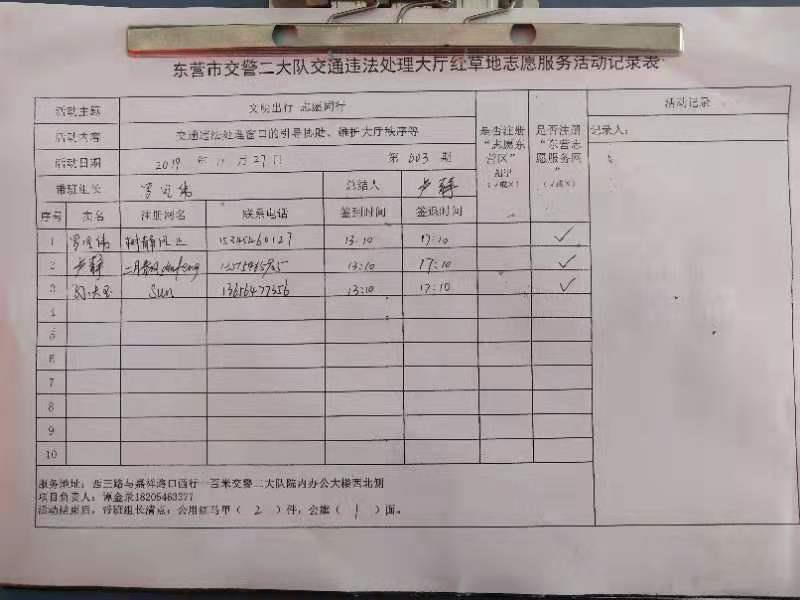 东营市交警二大队交通违法处理大厅红草地志愿服务活动记录表
活动主题 文明出行 志愿同行 是否注册“志愿东营区”APP（√或×） 是否注册“东营志愿服务网”（√或×） 活动记录
活动内容 交通违法处理窗口的引导协助、维护大厅秩序等 记录人：
活动日期 2019 年 11 月 27 日 第 603 期
带班组长 总结人 卢静
序号 实名 注册网名 联系电话 签到时间 签退时间
1 15345260127 13:10 17:10 ✓
2 卢静 13:10 17:10 ✓
3 Sun 13656477356 13:10 17:10 ✓
4
5
6
7
8
9
10
服务地址：西三路与嘉祥路口西行一百米交警二大队院内办公大楼西北侧
项目负责人：谭金荣18205463377
活动结束后，带班组长清点：公用红马甲（ 2 ）件，会旗（ 1 ）面。